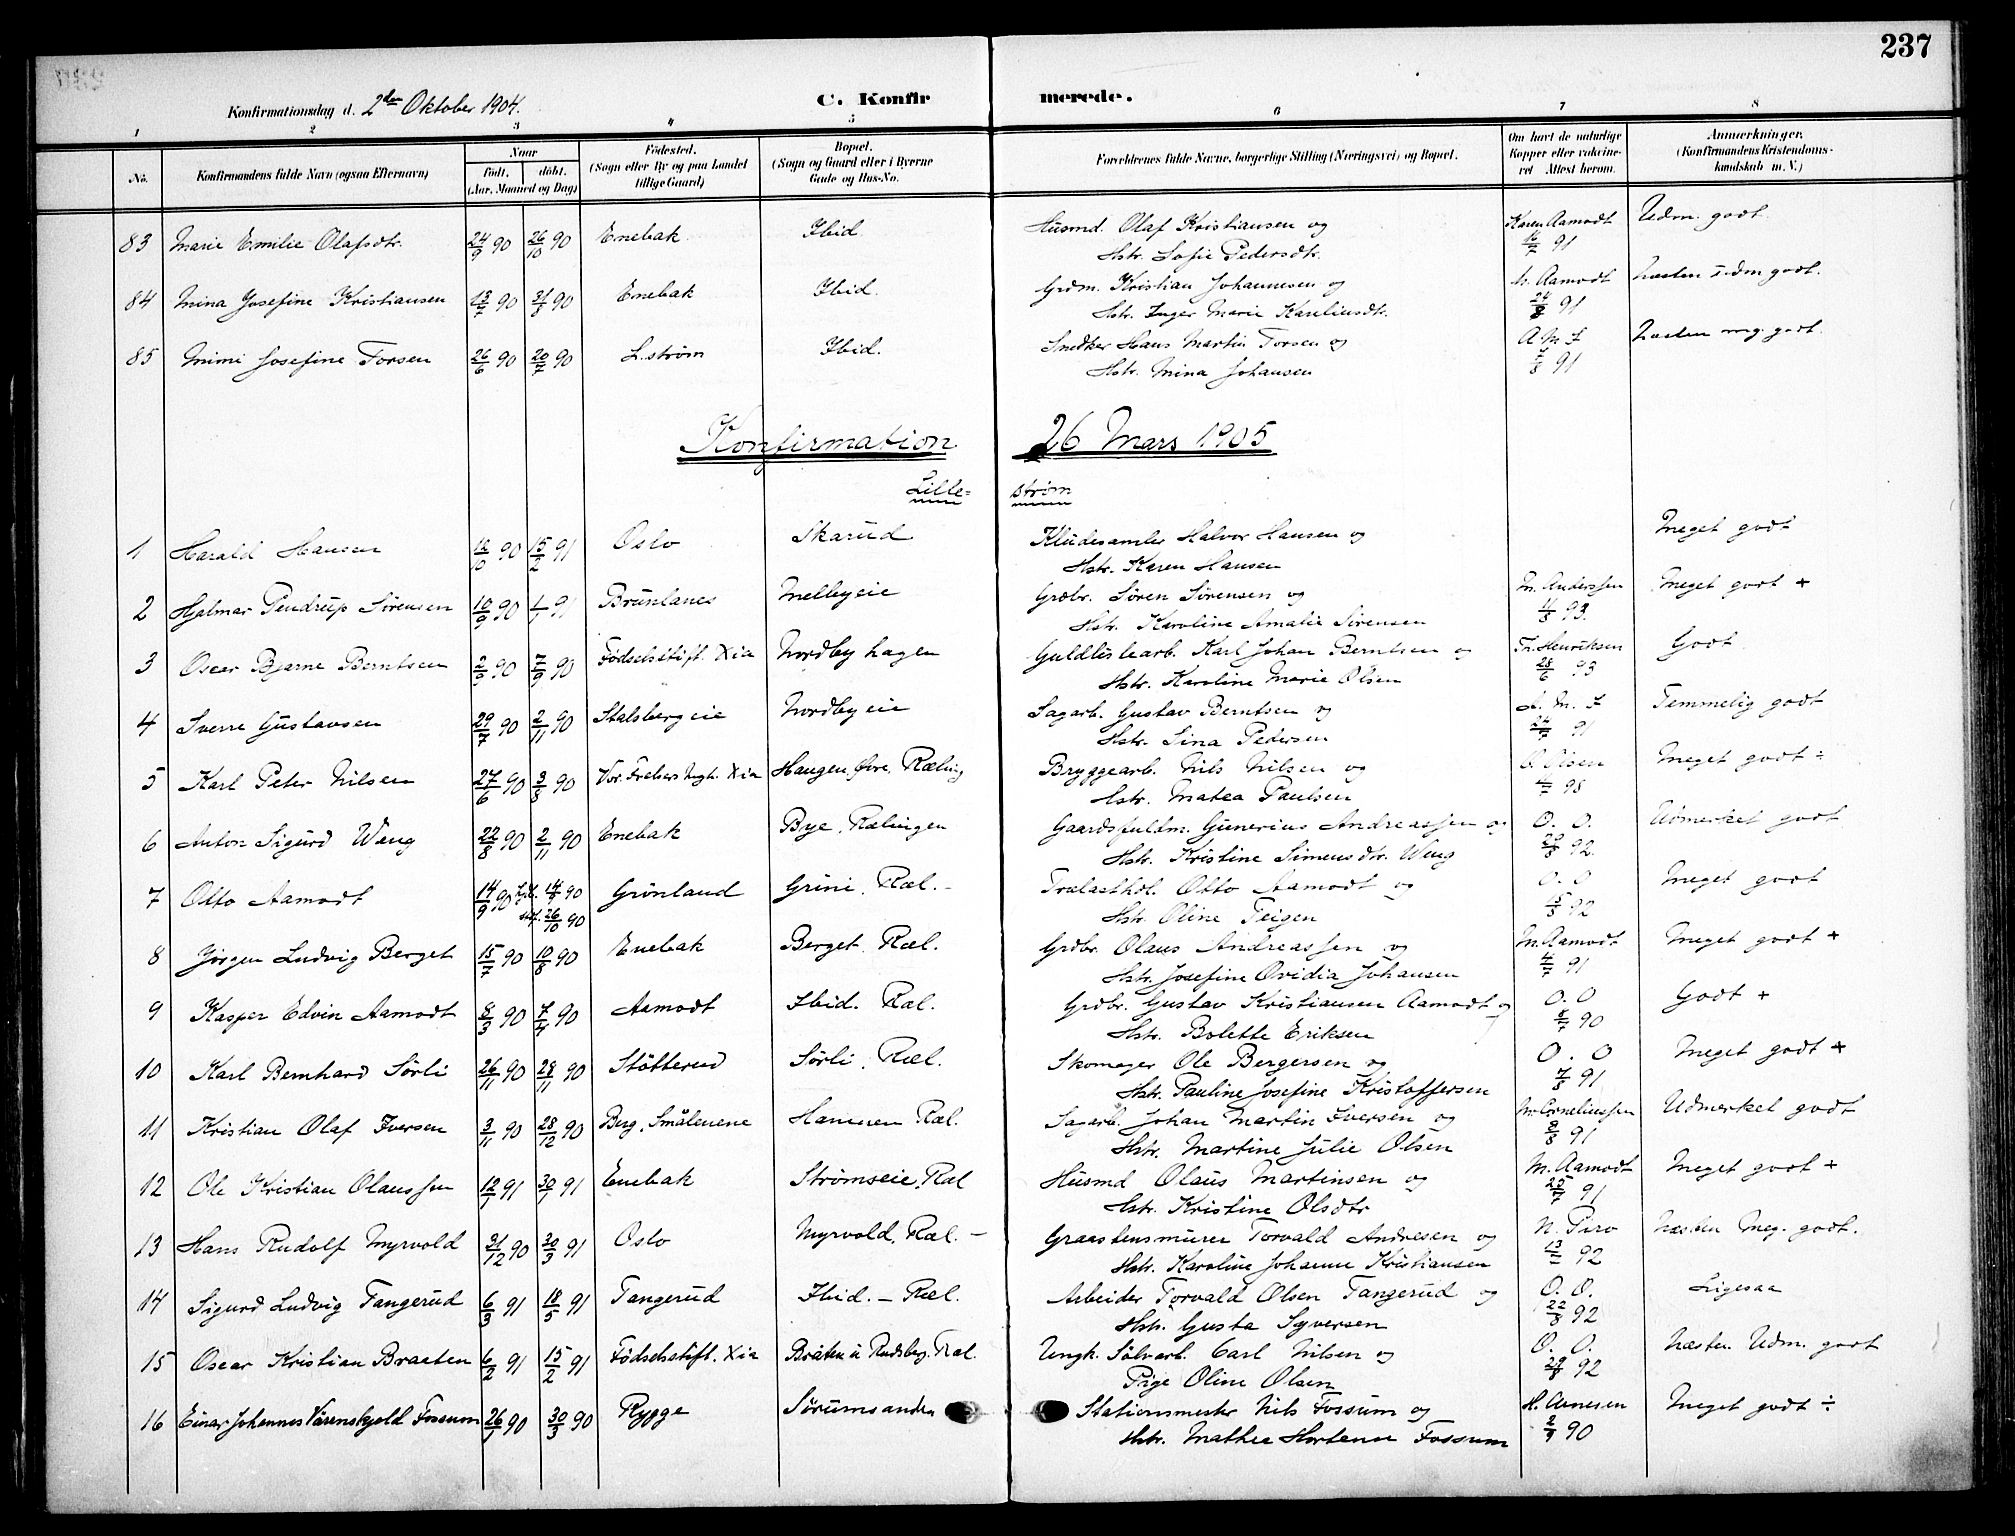 237
Konfirmationsdag d. 2den Oktober 1904.
C. Konfirmerede.
1 2 3 4 5 6 7 8
No.
Konfirmandens fulde Navn (ogsaa Efternavn)
Naar
født. døbt.
(Aar, Maaned og Dag)
Fødested.
(Sogn eller By og paa Landet
tillige Gaard)
Bopæl.
(Sogn og Gaard eller i Byerne
Gade og Hus-No.
Forældrenes fulde Navne, borgerlige Stilling (Næringsvei) og Bopæl.
Om havt de naturlige
Kopper eller vakcine-
ret Attest herom.
Anmærkninger.
(Konfirmandens Kristendoms-
kundskab m. V.)
83 Marie Emilie Olafsdtr. 24/9 90 26/10 90 Enebak Ibid Husmd. Olaf Kristiansen og Karen Aamodt Udm. godt.
Hstr. Sofie Pedersdtr. 91
84 Mina Josefine Kristiansen 13/7 90 31/8 90 Enebak Ibid. Grdm. Kristian Johannesen og M. Aamodt Næsten udm godt.
Hstr. Inger Marie Karliusdtr. 91
85 Mimi Josefine Torsen 26/6 90 20/7 90 L.strøm Ibid. Snedker Hans Martin Torsen og Næsten mg. godt.
Hstr. Mina Johansen 91
Konfirmation 26 Mars 1905
Lille=strøm
1 Harald Hansen 12/10 90 15/2 91 Oslo Skarud Kludesamler Halvor Hansen og Meget godt
Hstr. Karen Hansen
2 Hjalmar Pendrup Sørensen 10/9 90 1/1 91 Brunlanes Mellbyeie Grdbr. Søren Sørensen og M. Anderssen Meget godt +
Hstr. Karoline Amalie Sørensen 93.
3 Oscar Bjarne Berntsen 2/9 90 7/9 90 Fødselsstift. Xia Nordby hagen Guldlistearb. Karl Johan Berntsen og Fr. Henriksen Godt
Hstr. Karoline Marie Olsen 28/6 93
4 Sverre Gustavsen 29/7 90 2/11 90 Stalsbergeie Nordbyeie Sagarb. Gustav Berntsen og Temmelig godt
Hstr. Lina Pedersen 24/7 91
5 Karl Peter Nilsen 27/6 90 3/8 90 Vor Frelsers Mgh. Xia Haugen, Øvre, Ræling Bryggearb. Nils Nilsen og Meget godt ÷
Hstr. Matea Paulsen 98
6 Anton Sigurd Wang 22/8 90 2/11 90 Enebak Bye, Rælingen Gaardsfuldm. Gunerius Andreassen og O. O. Udmerket godt
Hstr. Kristine Simensdtr. Weng 92.
7 Otto Aamodt 14/9 90 26/10 90 Grønland Grini, Ræl. - Trælasthdl. Otto Aamodt og O. O Meget godt
Hstr. Oline Teigen 92
8 Jørgen Ludvig Berget 15/7 90 10/8 90 Enebak Berget Ræl. Grdbr. Olaus Andreassen og M. Aamodt Meget godt +
Hstr. Josefine Ovidia Johansen 4/7 91
9 Kasper Edvin Aamodt 8/3 90 7/4 90 Aamodt Ibid. Ræl. Grdbr. Gustav Kristiansen Aamodt og O. O Godt +
Hstr. Bolette Eriksen 8/7 90
10 Karl Bernhard Sørli 26/11 90 28/11 90 Støtterud Sørli, Ræl. Skomager Ole Bergersen og O. O Meget godt +
Hstr. Pauline Josefine Kristoffersen 7/8 91
11 Kristian Olaf Iversen 3/11 90 28/12 90 Berg, Smålenene Hammen Ræl. Sagarb. Johan Martin Iversen og M. Corneliussen Udmerket godt
Hstr. Martine Julie Olsen 91
12 Ole Kristian Olaussen 12/1 91 30/1 91 Enebak Strømseie, Ræl Husmd Olaus Martinsen og M. Aamodt Meget godt +
Hstr. Kristine Olsdtr 25/7 91
13 Hans Rudolf Myrvold 31/12 90 30/3 91 Oslo Myrvold, Ræl. - Graastensmurer Torvald Andresen og N. Piro Næsten Meg. godt.
Hstr. Karoline Johanne Kristiansen 92
14 Sigurd Ludvig Tangerud 6/3 91 18/5 91 Tangerud Ibid. - Ræl. Arbeider Torvald Olsen Tangerud og O. O. Ligesaa
Hstr. Gusta Syversen 22/8 92
15 Oscar Kristian Braaten 6/2 91 15/2 91 Fødselsstift. Xia Bråten u Rudsberg. Ræl. Ungk. Sølvarb. Carl Nilsen og O. O. Næsten Udm. godt
Pige Oline Olsen 92
16 Einar Johannes Värenskjold Fossum 26/1 90 30/3 90 Rygge Sørumsanden Stationsmester Nils Fossum og H. Arnesen Meget godt ÷
Hstr. Mathea Hortense Fossum 90